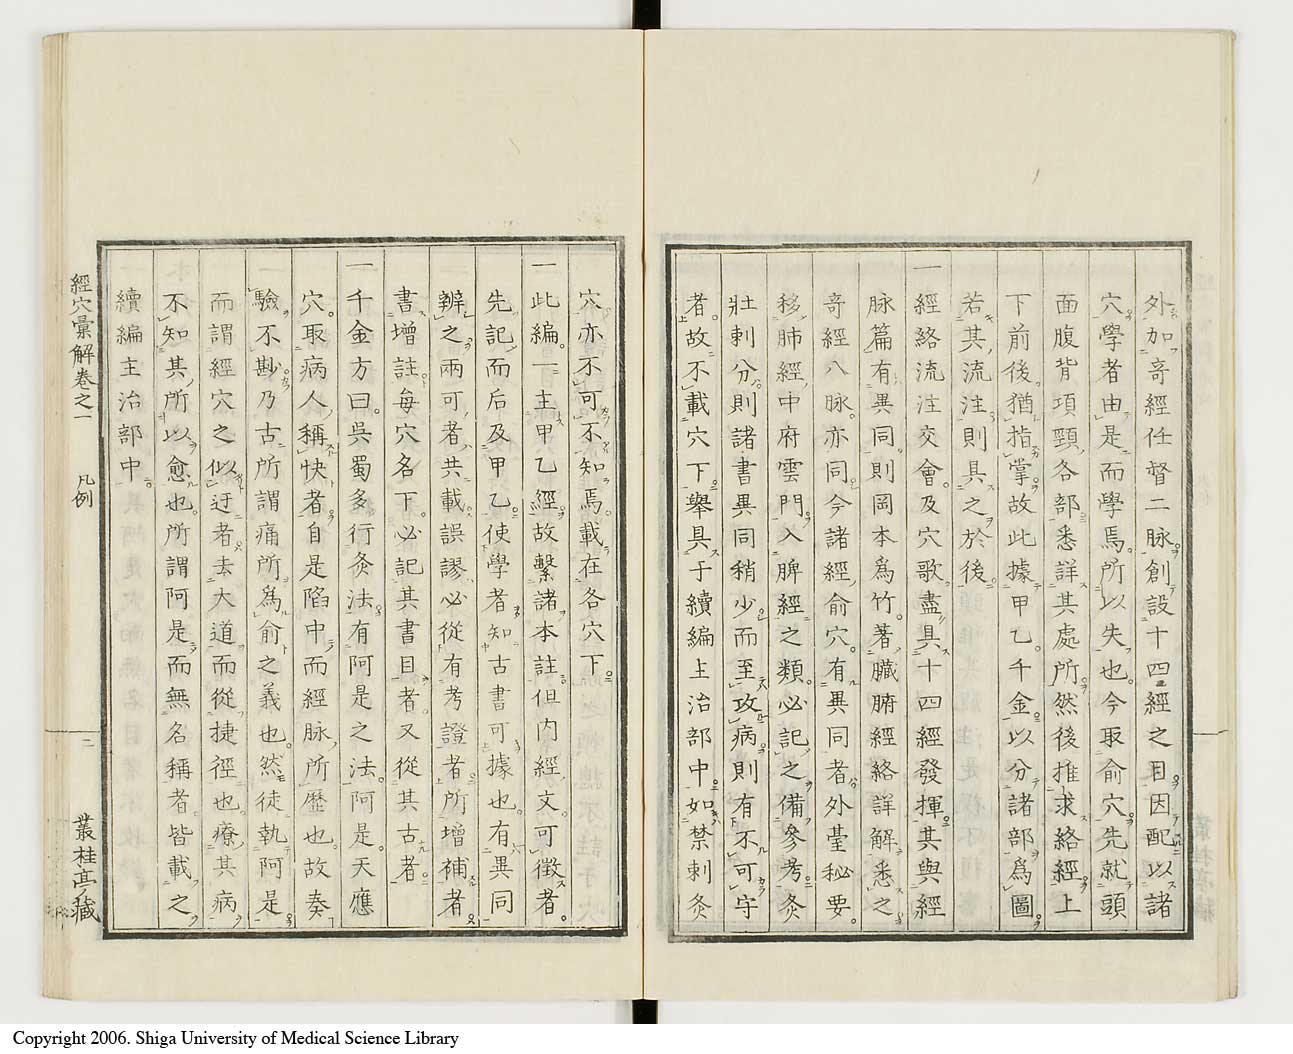 外加奇經任督二脉創設十四經之目因配以諸
穴學者由是而學焉所以失也今取俞穴先就頭
面腹背項頸各部悉詳其處所然後推求絡經上
下前後猶指掌故此據甲乙千金以分諸部爲圖
若其流注則具之於後
一經絡流注交會及穴歌盡具十四經發揮其與經
脉篇有異同則岡本爲竹著臟腑經絡詳解悉之
奇經八脉亦同今諸經俞穴有異同者外臺秘要
移肺經中府雲門入脾經之類必記之備參考灸
壯刺分則諸書異同稍少而至攻病則有不可守
者故不載穴下舉具于續編主治部中如禁刺灸
穴亦不可不知焉載在各穴下
一此編一主甲乙經故繫諸本註但内經文可徴者
先記而后及甲乙使學者知古書可據也有異同
辨之兩可者共載誤謬必從有考證者所增補者
書增註毎穴名下必記其書目者又從其古者
一千金方曰吳蜀多行灸法有阿是之法阿是天應
穴取病人稱快者自是陷中而經脉所歷也故奏
驗不尠乃古所謂痛所爲俞之義也然徒執阿是
而謂經穴之似迂者去大道而從捷徑也療其病
不知其所以愈也所謂阿是而無名稱者皆載之
續編主治部中
經穴彙解卷之一 凡例 二 叢桂亭藏
Copyright 2006. Shiga University of Medical Science Library